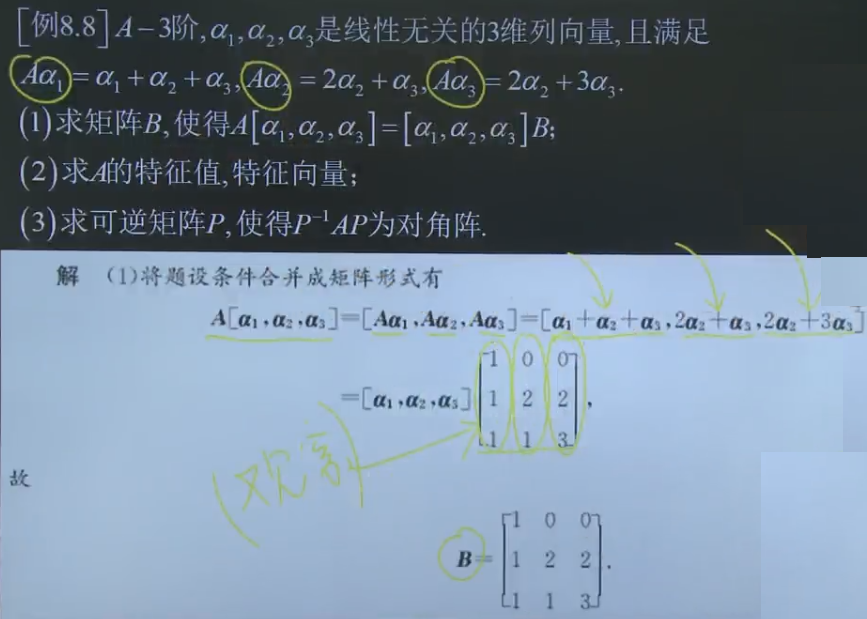 [例8.8] A−3阶, α₁, α₂, α₃是线性无关的3维列向量, 且满足
Aα₁ = α₁ + α₂ + α₃, Aα₂ = 2α₂ + α₃, Aα₃ = 2α₂ + 3α₃.
(1)求矩阵B, 使得A[α₁, α₂, α₃] = [α₁, α₂, α₃]B;
(2)求A的特征值, 特征向量;
(3)求可逆矩阵P, 使得P⁻¹AP为对角阵.
解 (1)将题设条件合并成矩阵形式有
A[α₁, α₂, α₃]=[Aα₁, Aα₂, Aα₃]=[α₁+α₂+α₃, 2α₂+α₃, 2α₂+3α₃]
=[α₁, α₂, α₃]
1 0 0
1 2 2
1 1 3
,
(观察)
故
B=
1 0 0
1 2 2
1 1 3
.